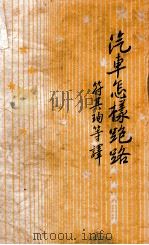 汽車怎樣跑路
符其珣等譯
mtoou.info